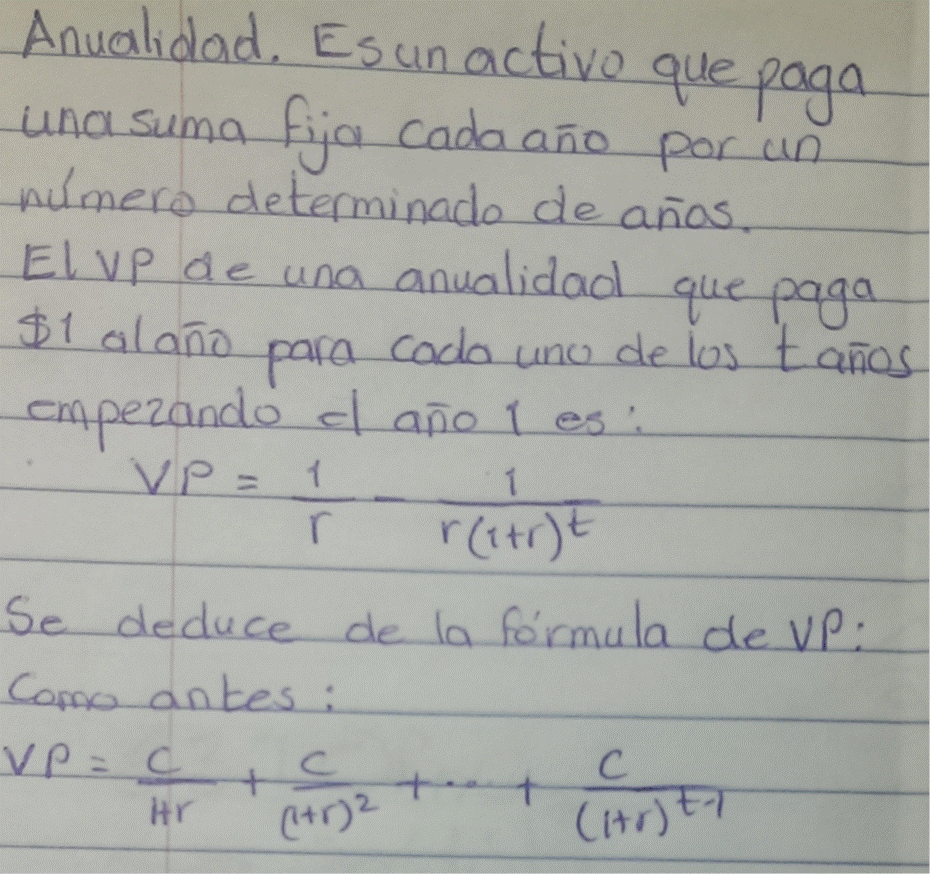 Anualidad. Es un activo que paga
una suma fija cada año por un
número determinado de años.
El VP de una anualidad que paga
$1 al año para cada uno de los t años
empezando el año 1 es:
VP = 1/r - 1/r(1+r)^t
Se deduce de la fórmula de VP:
Como antes:
VP = C/1+r + C/(1+r)^2 + ... + C/(1+r)^t-1